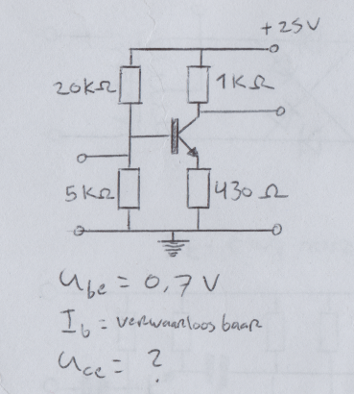 +25V
20KΩ
1KΩ
5KΩ
430Ω
Ube = 0,7V
Ib = verwaarloosbaar
Uce = ?